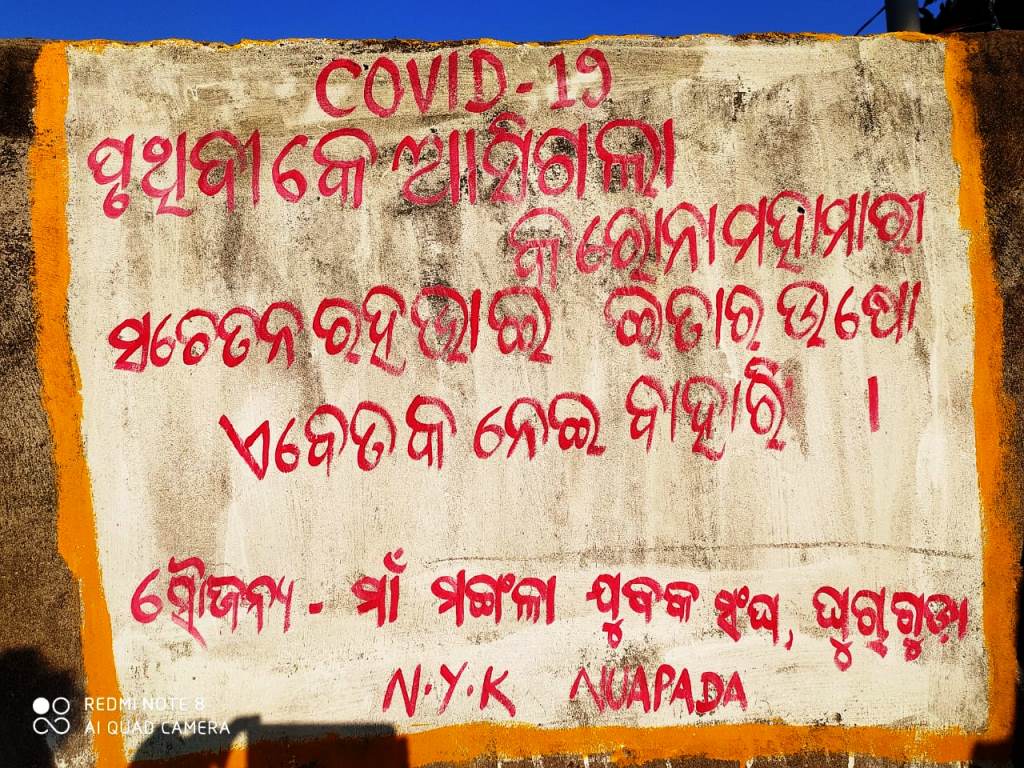 COVID-19
ପୃଥିବୀକେ ଆସିଗଲା
କରୋନା ମହାମାରୀ
ସଚେତନ ରହ ଭାଇ ଇତାର ଉଷୋ
ଏବେତକ ନେଇ ବାହାରି ।
ସୌଜନ୍ୟ - ମାଁ ମଙ୍ଗଳା ଯୁବକ ସଂଘ, ଘୁଗୁଗୁଡ଼ା
N.Y.K NUAPADA
REDMI NOTE 8
AI QUAD CAMERA